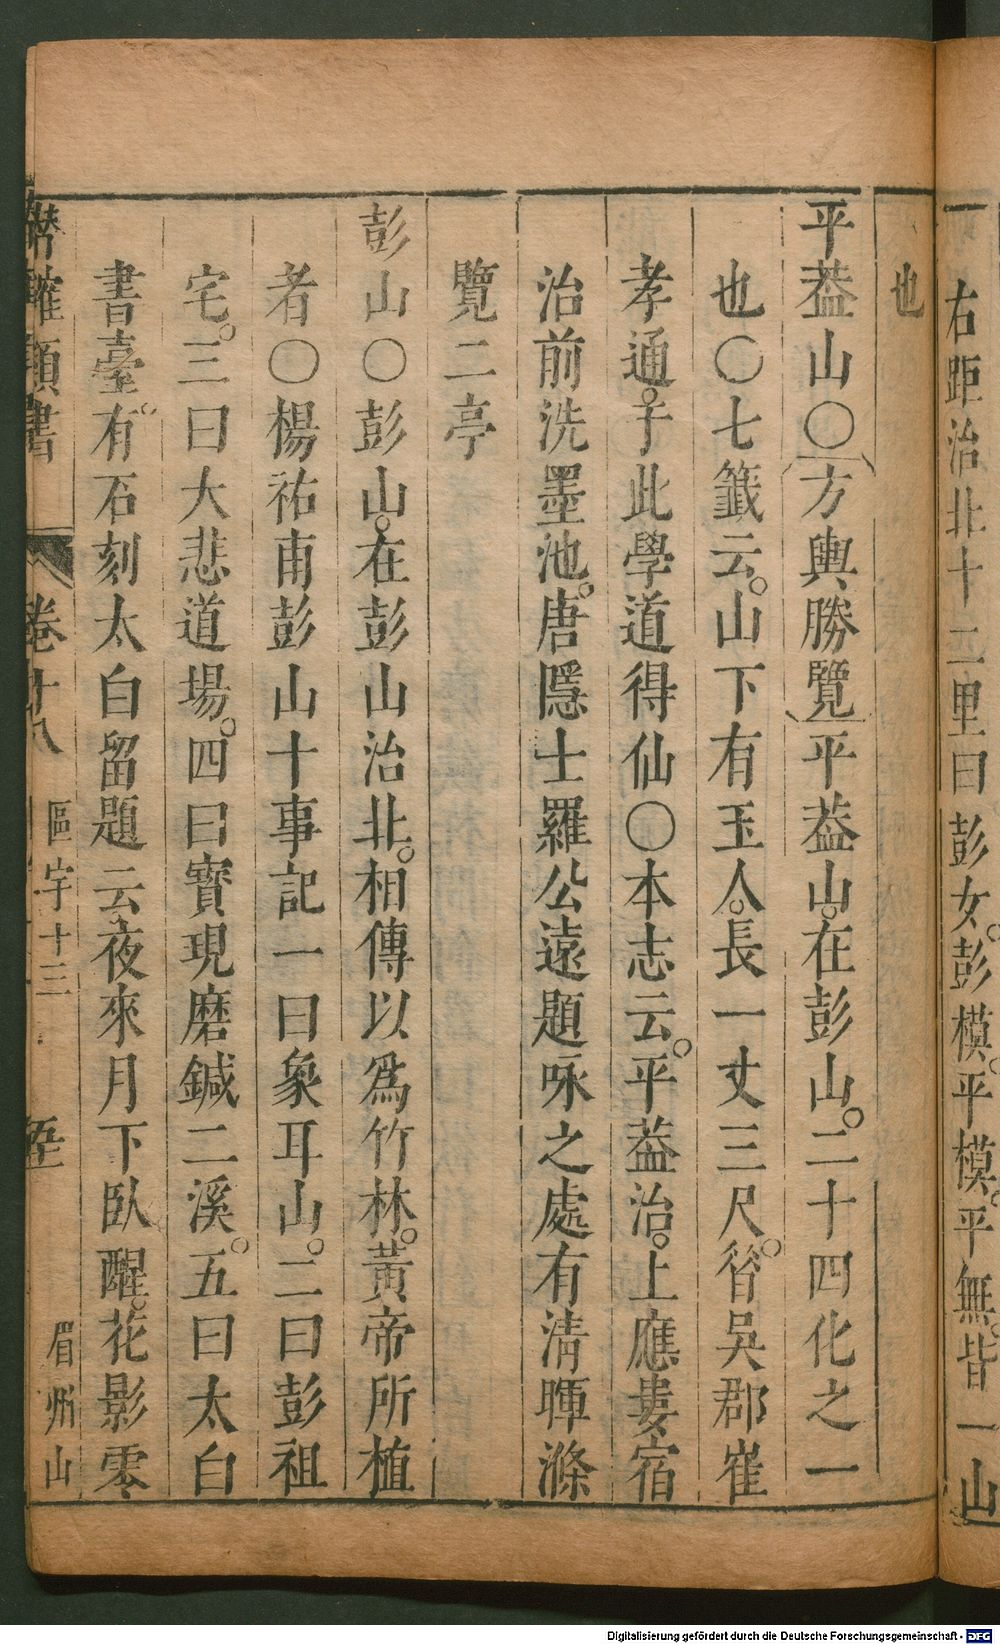 右距治北十二里曰彭女。彭模。平模。平無。皆一山
也
平葢山〇方輿勝覽平葢山。在彭山。二十四化之一
也〇七籤云。山下有玉人。長一丈三尺。昝吳郡崔
孝通。于此學道得仙〇本志云。平葢治。上應婁宿
治前洗墨池。唐隱士羅公遠題咏之處有清暉滌
覽二亭
彭山〇彭山。在彭山治北。相傳以爲竹林。黃帝所植
者〇楊祐甫彭山十事記一曰象耳山。二曰彭祖
宅。三曰大悲道場。四曰寳現磨鍼二溪。五曰太白
書臺。有石刻太白留題云夜來月下臥醒。花影零
潛確類書 卷十八 區宇十三 眉州山
Digitalisierung gefördert durch die Deutsche Forschungsgemeinschaft - DFG